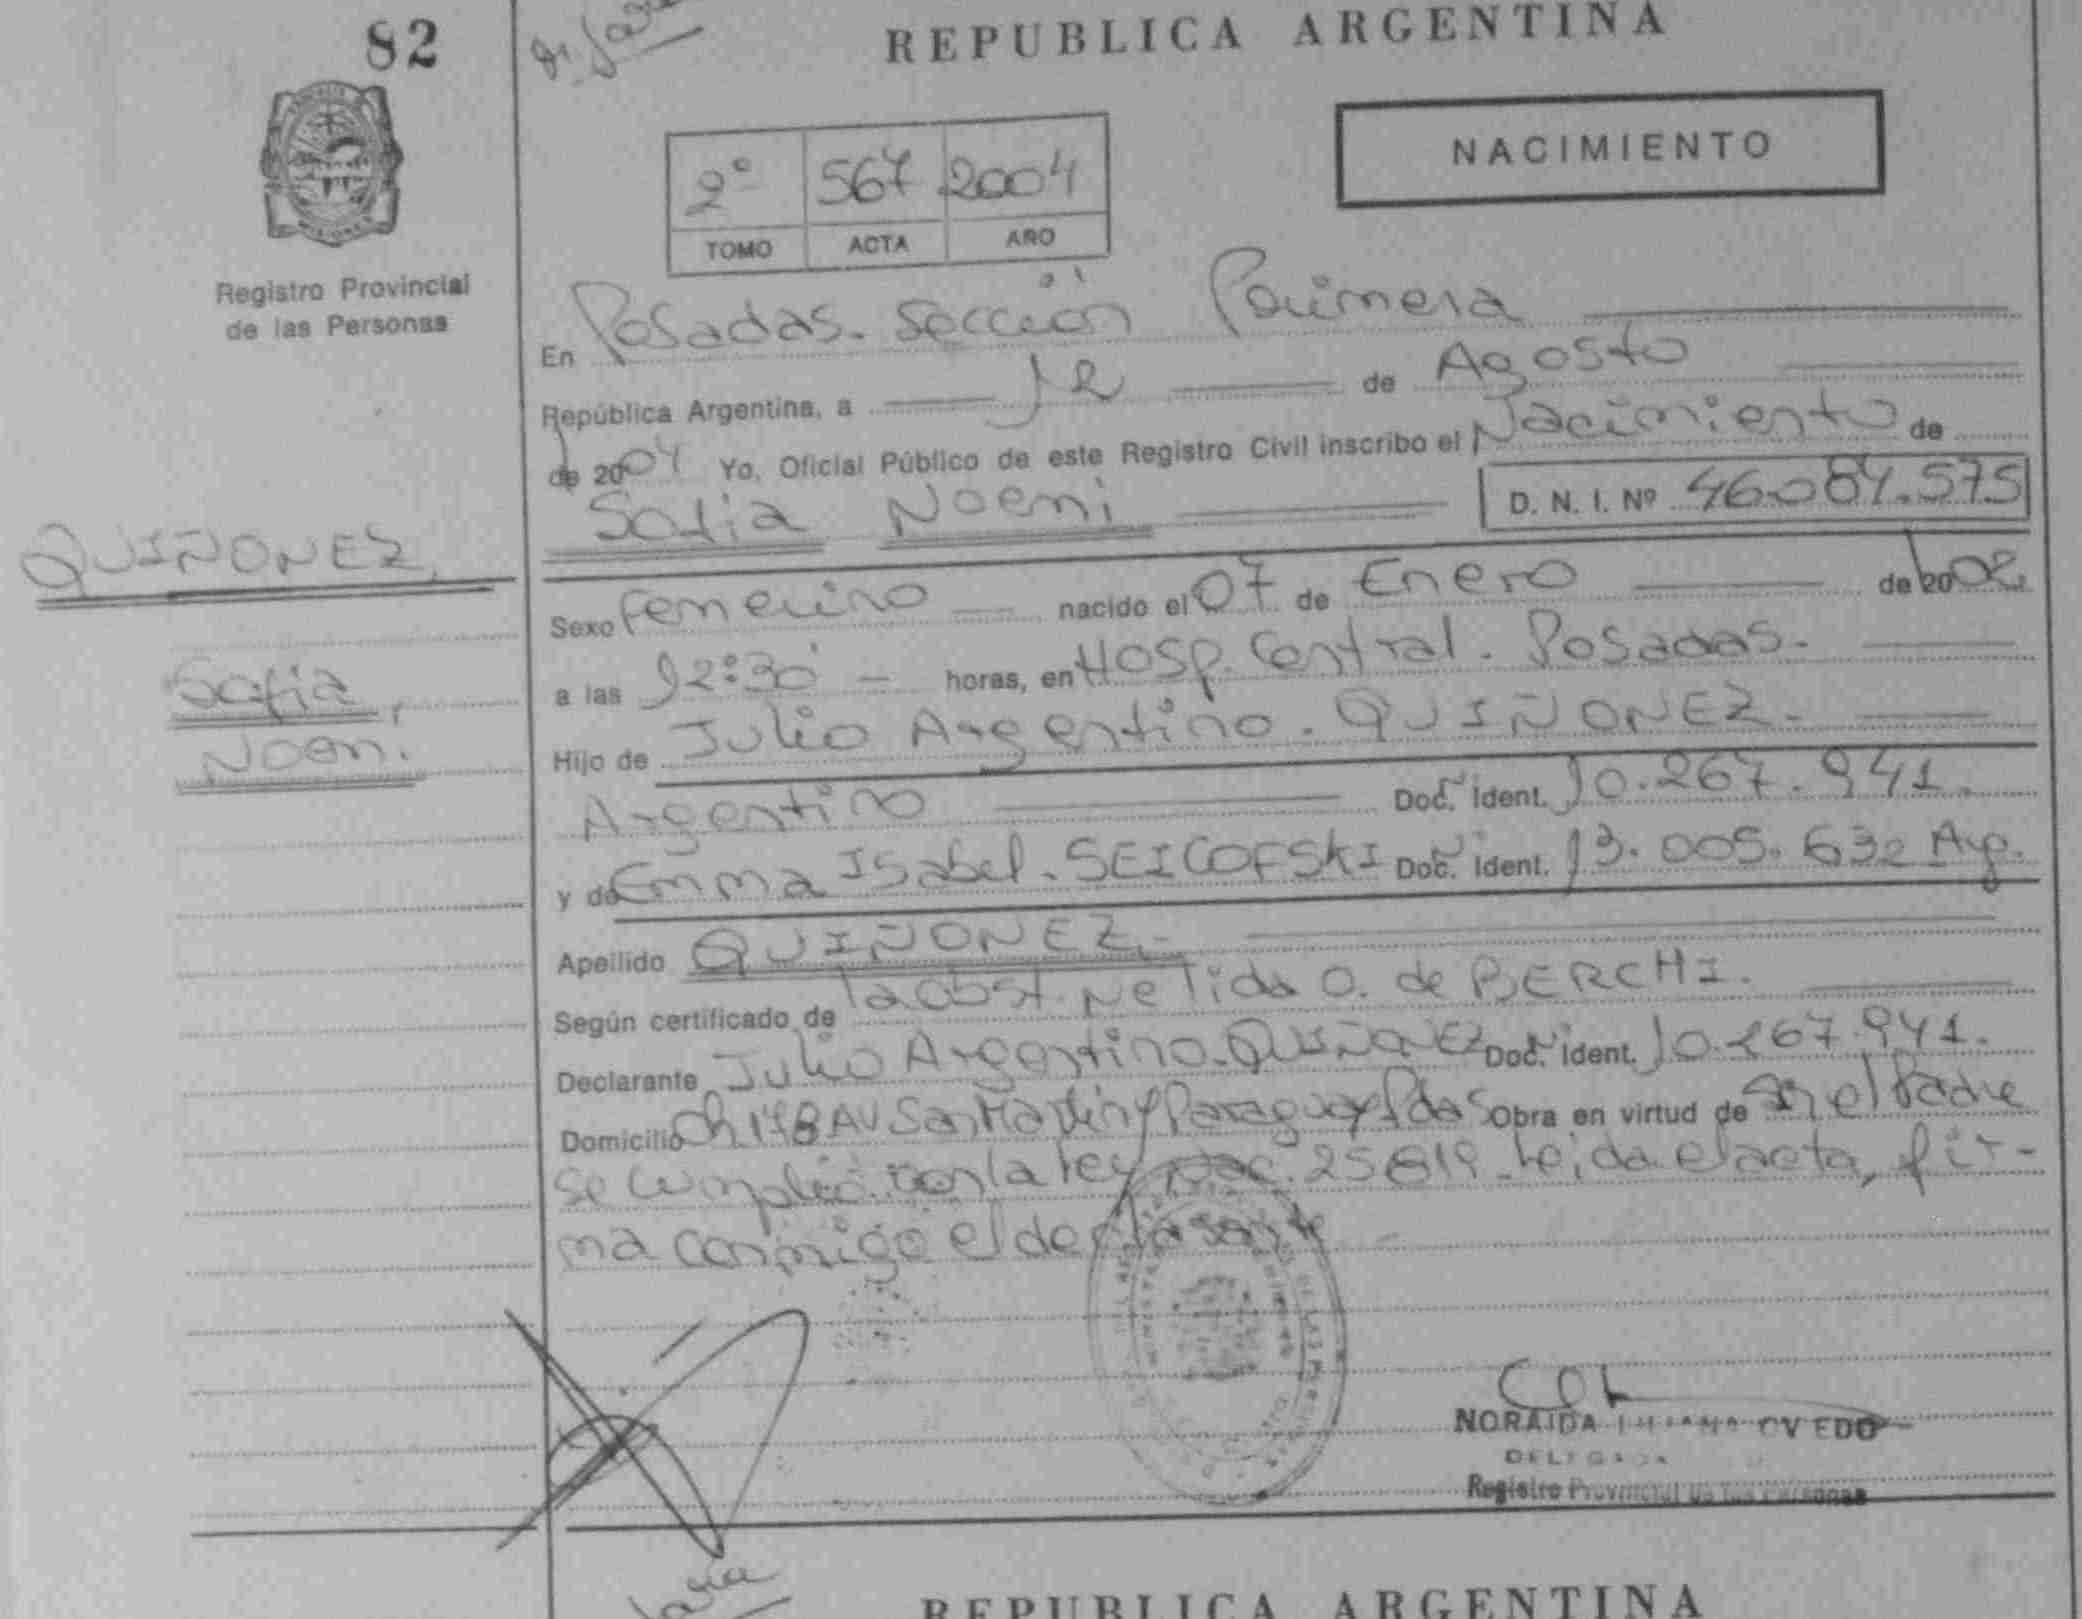 82
REPUBLICA ARGENTINA
NACIMIENTO
2º 567 2004
TOMO ACTA AÑO
Registro Provincial
de las Personas
En Posadas. Sección Primera
República Argentina, a 12 de Agosto
de 2004 Yo, Oficial Público de este Registro Civil inscribo el Nacimiento de
Sofia Noemi D. N. I. Nº 46.084.575
QUIÑONEZ,
Sofia,
Noemi.
Sexo Femenino nacido el 07 de Enero de 2002
a las 12:30 horas, en Hosp. Central. Posadas.
Hijo de Julio Argentino. QUIÑONEZ.
Argentino Doc. Ident. 10.267.941.
y de Emma Isabel. SEICOFSKI Doc. Ident. 13.005.632 Arg.
Apellido QUIÑONEZ.
Según certificado de la obst. Nelida O. de BERCHI.
Declarante Julio Argentino. QUIÑONEZ Doc. Ident. 10.267.941.
Domicilio Ch 148 AV San Martin y Paraguay Pdas Obra en virtud de Ser el Padre
Se cumplió con la ley Nac. 25819. Leida el acta, fir-
ma conmigo el declarante
NORAIDA OVIEDO
DELEGADA
Registro Provincial de las Personas
REPUBLICA ARGENTINA